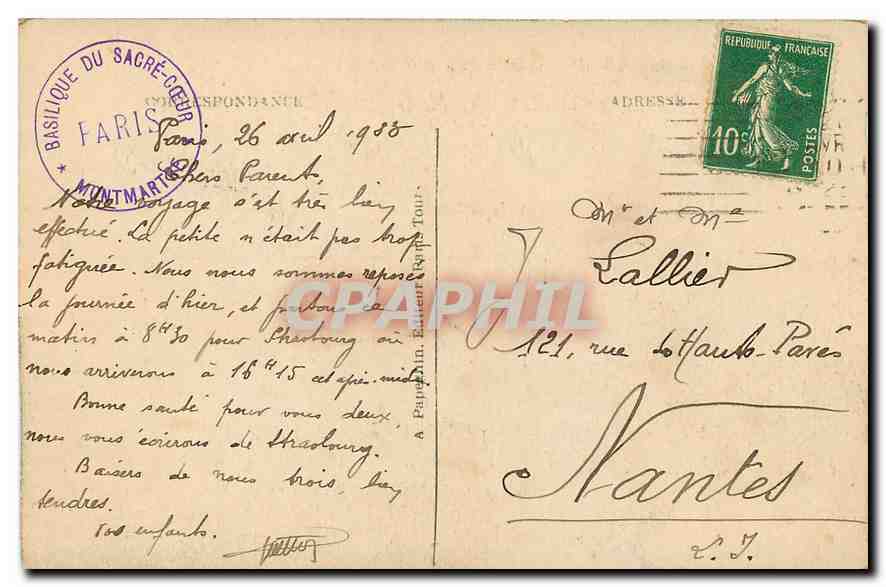 BASILIQUE DU SACRÉ-CŒUR
PARIS
* MONTMARTRE
CORRESPONDANCE
Paris, 26 avril 1935
Chers Parents,
Notre voyage s'est très bien
effectué. La petite n'était pas trop
fatiguée. Nous nous sommes reposés
la journée d'hier, et partons ce
matin à 8H30 pour Strasbourg où
nous arriverons à 16H15 cet après-midi.
Bonne santé pour vous deux,
nous vous écrirons de Strasbourg.
Baisers de nous trois, bien
tendres.
Vos enfants.
A Papeghin, Editeur, Paris Tours
ADRESSE
REPUBLIQUE FRANÇAISE
10c
POSTES
Mr et Me
Lallier
121, rue des Hauts-Pavés
Nantes
L. I.
CPAPHIL